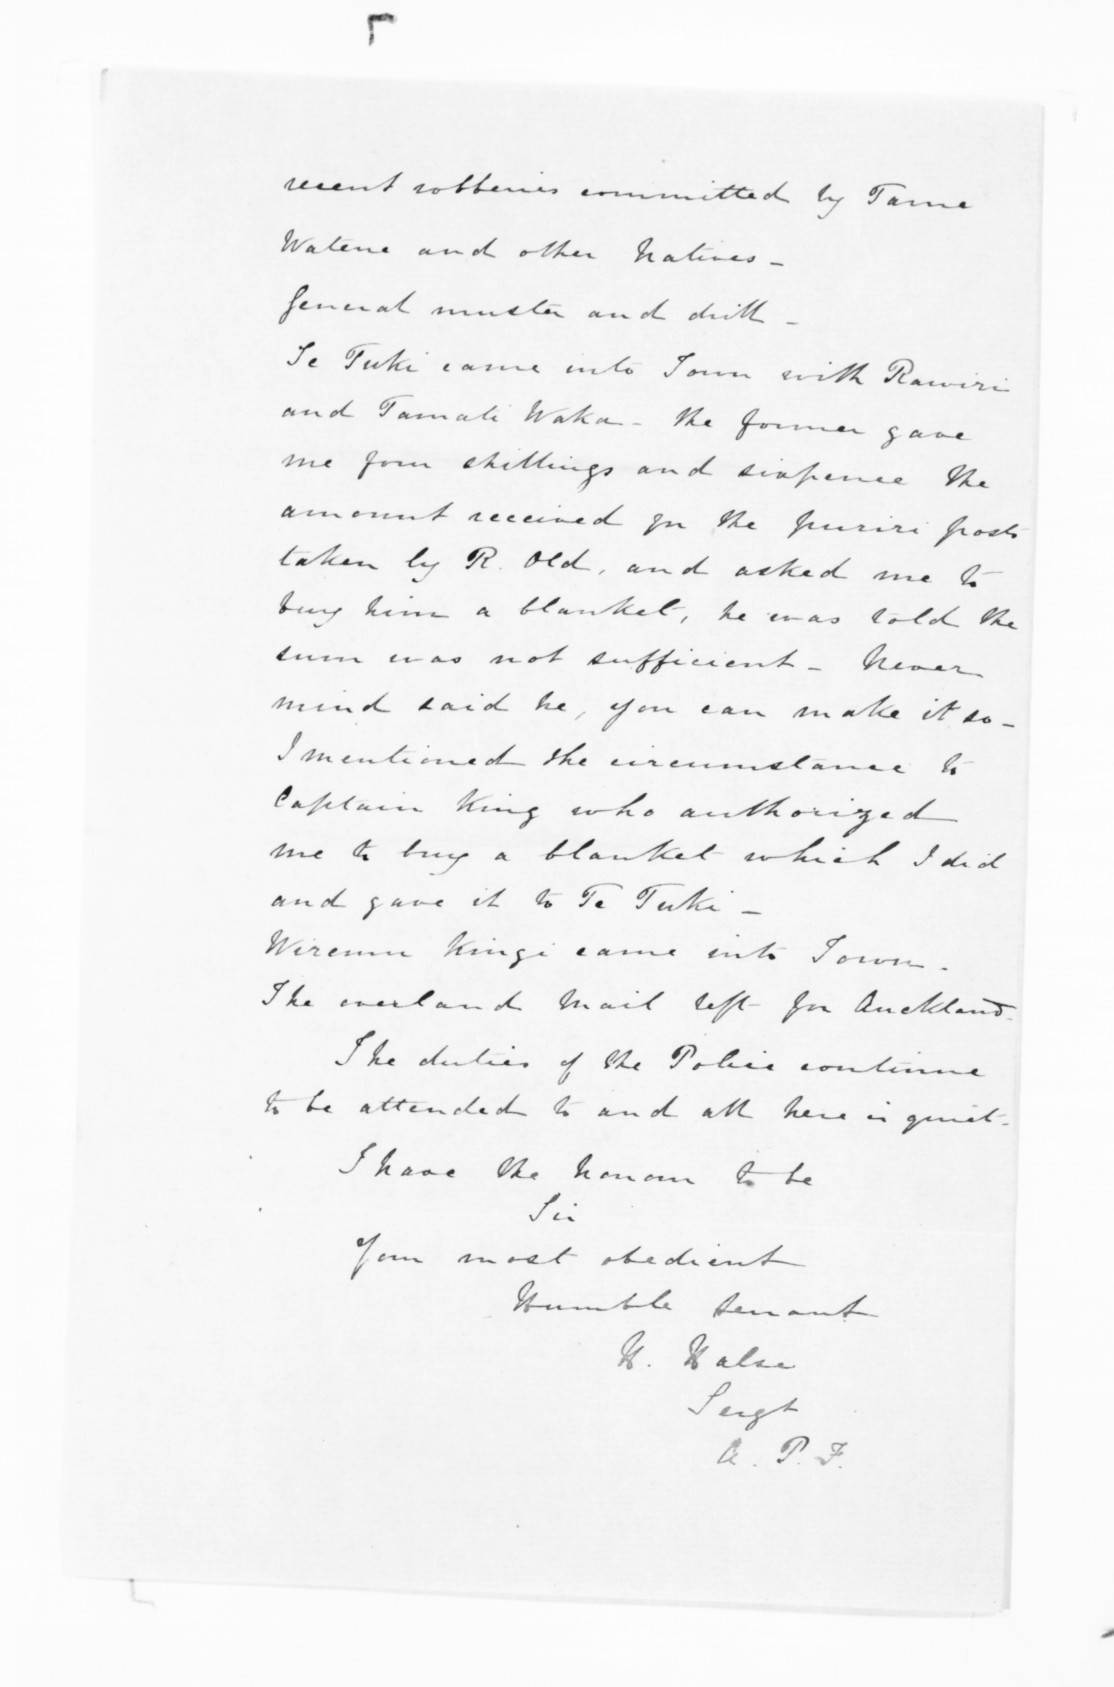 recent robberies committed by Tame
Watene and other Natives -
General muster and drill -
Te Tuki came into Town with Rawiri
and Tamati Waka - the former gave
me four shillings and sixpence the
amount received for the puriri posts
taken by R. Old, and asked me to
buy him a blanket, he was told the
sum was not sufficient - Never
mind said he, you can make it so -
I mentioned the circumstance to
Captain King who authorized
me to buy a blanket which I did
and gave it to Te Tuki -
Wiremu Kingi came into Town -
The overland Mail left for Auckland -
The duties of the Police continue
to be attended to and all here is quiet -
I have the honour to be
Sir
Your most obedient
Humble servant
H. Halse
Sergt
A. P. F.